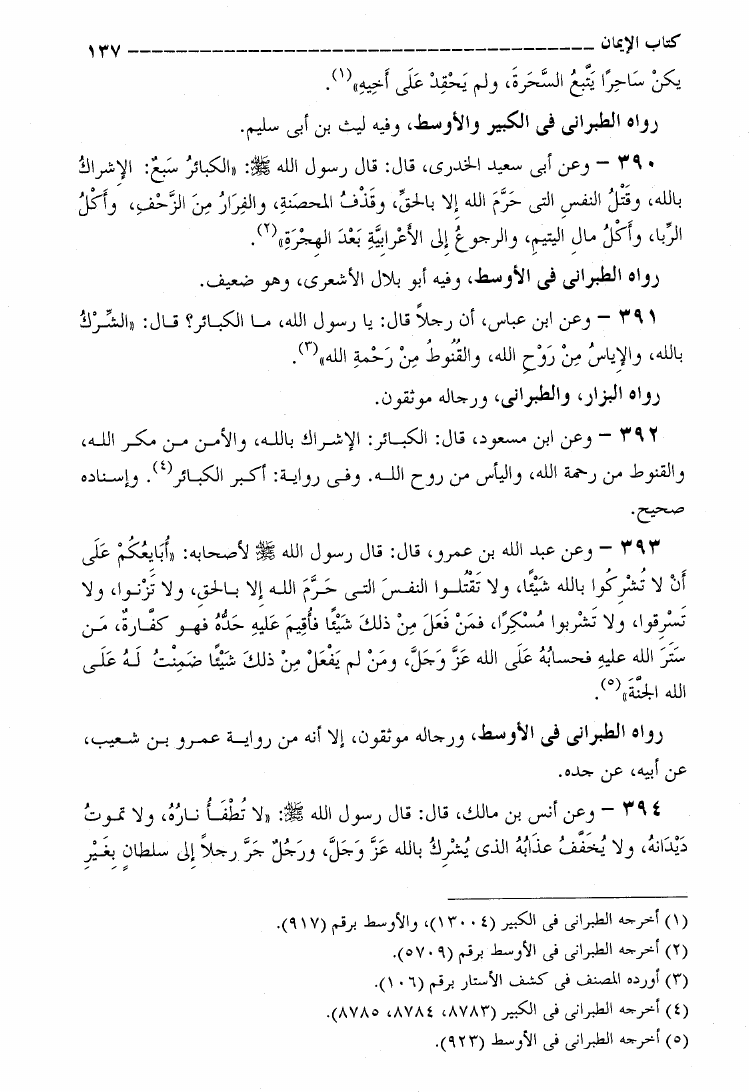 كتاب الإيمان ــــــــــــــــــــــــــــــــــــــــــــــــــــــــــــــــ ١٣٧
يكنْ سَاحِرًا يَتَّبِعُ السَّحَرَةَ، ولم يَحْقِدْ عَلَى أَخِيهِ»(١).
رواه الطبرانى فى الكبير والأوسط، وفيه ليث بن أبى سليم.
٣٩٠ – وعن أبى سعيد الخدرى، قال: قال رسول الله ﷺ: «الكبائرُ سَبعٌ: الإشراكُ
بالله، وقَتْلُ النفسِ التى حَرَّمَ الله إلا بالحقِّ، وقَذْفُ المحصَنةِ، والفِرَارُ مِنَ الزَّحْفِ، وأَكْلُ
الرِّبا، وأَكْلُ مالِ اليتيمِ، والرجوعُ إلى الأَعْرابِيَّةِ بَعْدَ الهِجْرَةِ»(٢).
رواه الطبرانى فى الأوسط، وفيه أبو بلال الأشعرى، وهو ضعيف.
٣٩١ – وعن ابن عباس، أن رجلاً قال: يا رسول الله، ما الكبائر؟ قال: «الشِّرْكُ
بالله، والإياسُ مِنْ رَوْحِ الله، والقُنُوطُ مِنْ رَحْمةِ الله»(٣).
رواه البزار، والطبرانى، ورجاله موثقون.
٣٩٢ – وعن ابن مسعود، قال: الكبائر: الإشراك بالله، والأمن من مكر الله،
والقنوط من رحمة الله، واليأس من روح الله. وفى رواية: أكبر الكبائر(٤). وإسناده
صحيح.
٣٩٣ – وعن عبد الله بن عمرو، قال: قال رسول الله ﷺ لأصحابه: «أُبَايعُكُمْ عَلَى
أَنْ لا تُشْرِكُوا بالله شَيْئًا، ولا تَقْتُلوا النفسَ التى حَرَّمَ الله إلا بالحقِ، ولا تَزْنوا، ولا
تَسْرِقوا، ولا تَشْربوا مُسْكِرًا، فمَنْ فَعَلَ مِنْ ذلكَ شَيْئًا فأُقِيمَ عَليهِ حَدُّهُ فهو كفَّارةٌ، مَن
سَتَرَ الله عليهِ فحسابُهُ عَلَى الله عَزَّ وَجَلَّ، ومَنْ لم يَفْعَلْ مِنْ ذلكَ شَيْئًا ضَمِنْتُ لَهُ عَلَى
الله الجنَّةَ»(٥).
رواه الطبرانى فى الأوسط، ورجاله موثقون، إلا أنه من رواية عمرو بن شعيب،
عن أبيه، عن جده.
٣٩٤ – وعن أنس بن مالك، قال: قال رسول الله ﷺ: «لا تُطْفَأُ نارُهُ، ولا تموتُ
دَيْدَانهُ، ولا يُخَفَّفُ عذابُهُ الذى يُشْرِكُ بالله عَزَّ وَجَلَّ، ورَجُلٌ جَرَّ رجلاً إلى سلطانٍ بِغَيْرِ
(١) أخرجه الطبرانى فى الكبير (١٣٠٠٤)، والأوسط برقم (٩١٧).
(٢) أخرجه الطبرانى فى الأوسط برقم (٥٧٠٩).
(٣) أورده المصنف فى كشف الأستار برقم (١٠٦).
(٤) أخرجه الطبرانى فى الكبير (٨٧٨٣، ٨٧٨٤، ٨٧٨٥).
(٥) أخرجه الطبرانى فى الأوسط (٩٢٣).